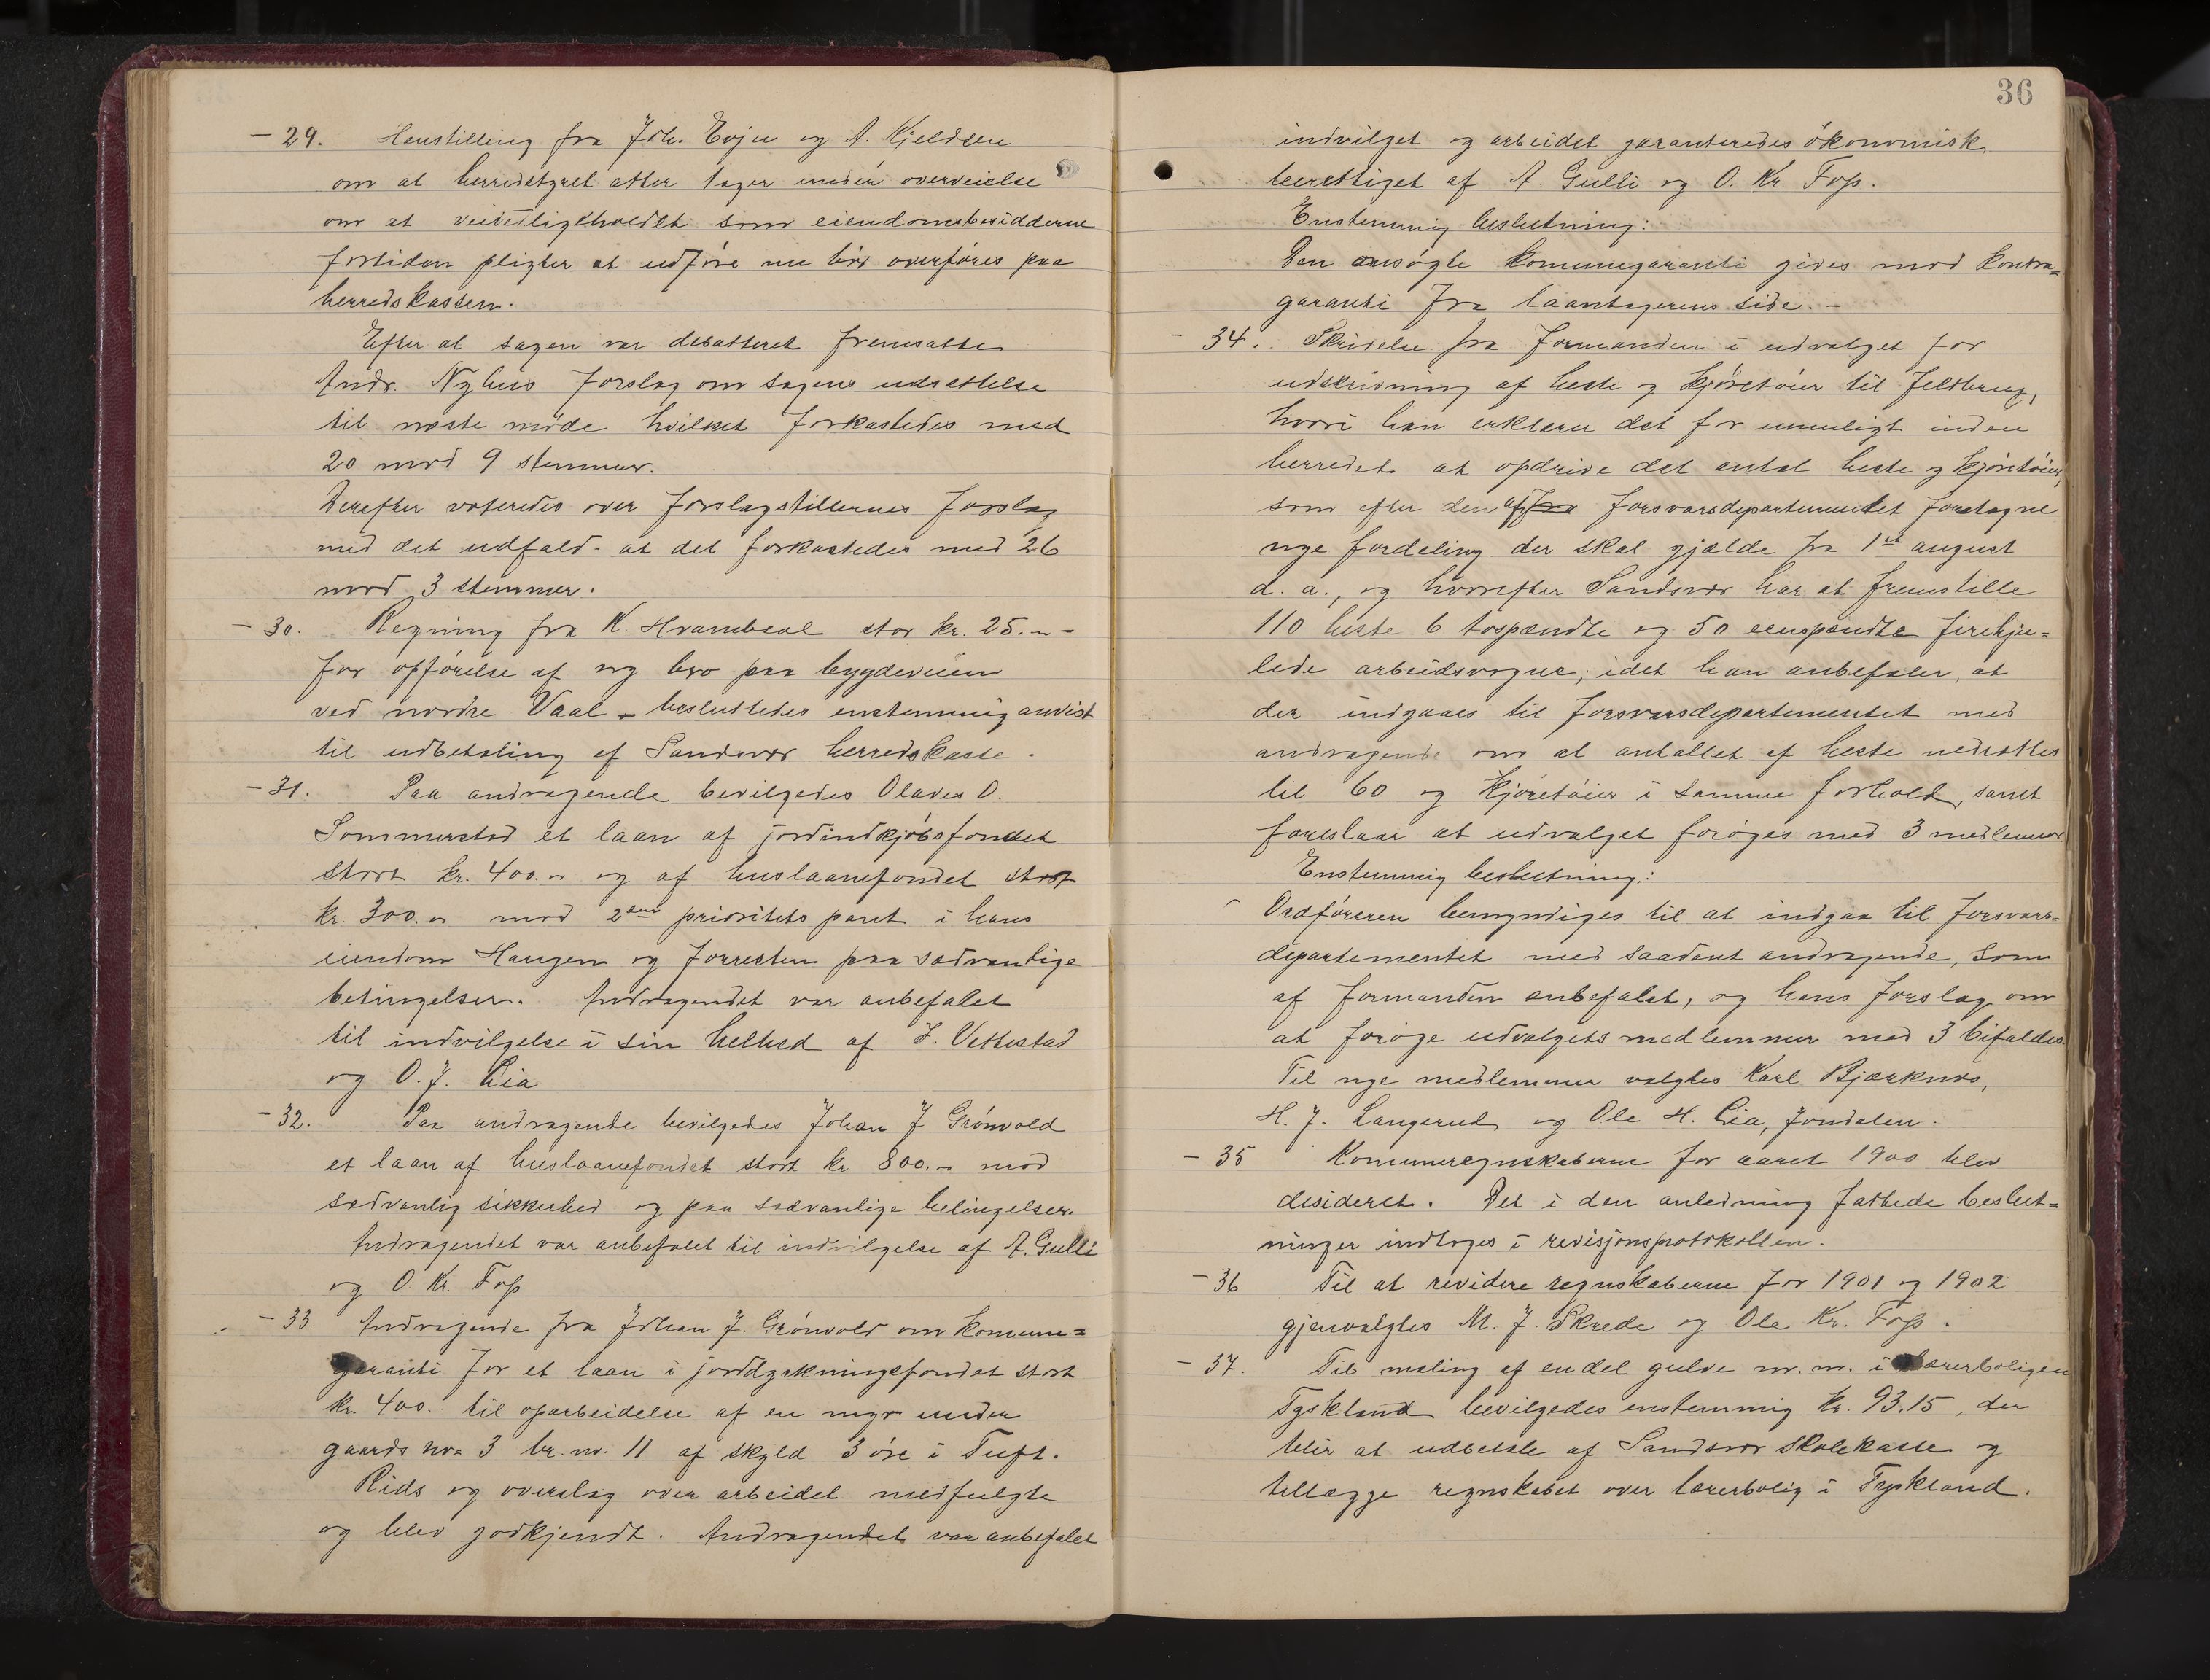 - 29. Henstilling fra Joh. Evju og A. Kjeldsen
om at herredstyret atter tager under overveielse
om at veivedligeholdet som eiendomsbesidderne
fortiden pligter at udføre nu bør overføres paa
herredskassen.
Efter at sagen var debatteret fremsatte
Andr. Nyhus forslag om sagens udsættelse
til næste møde hvilket forkastedes med
20 mod 9 stemmer.
Derefter voteredes over forslagstillernes forslag
med det udfald at det forkastedes med 26
mod 3 stemmer.
- 30. Regning fra K. Hvambsal stor kr. 25.-
for opførelse af ny bro paa bygdeveien
ved nordre Vaal - besluttedes enstemmig anvist
til udbetaling af Sandsvær herredskasse.
- 31. Paa andragende bevilgedes Olaves O.
Sommerstad et laan af jordindkjøbsfondet
stort kr. 400.- og af huslaanefondet stort
kr. 300.- mod 2den prioritets pant i hans
eiendom Haugen og forresten paa sædvanlige
betingelser. Andragendet var anbefalet
til indvilgelse i sin helhed af J. Vettestad
og O. J. Lia
- 32. Paa andragende bevilgedes Johan J Grönvold
et laan af huslaanefondet stort kr 800.- mod
sedvanlig sikkerhed og paa sædvanlige betingelser.
Andragendet var anbefalet til indvilgelse af A. Gulli
og O. Kr. Foss
- 33. Andragende fra Johan J. Grönvold om komune=
garanti for et laan i jorddyrkningsfondet stort
kr. 400. til oparbeidelse af en myr under
gaards no. 3 br. no. 11 af skyld 3 øre i Tuft.
Rids og overslag over arbeidet medfulgte
og blev godkjendt. Andragendet var anbefalet
36
indvilget og arbeidet garanteredes ökonomisk
berettiget af A. Gulli og O. Kr. Foss.
Enstemmig beslutning:
Den ansøgte komunegaranti gives mod kontra=
garanti fra laantagerens side. -
- 34. Skrivelse fra formanden i udvalget for
udskrivning af heste og kjøretøier til feltbrug,
hvori han erklærer det for umuligt inden
herredet at opdrive det antal heste og kjøretøier,
som efter den af fra forsvarsdepartementet foretagne
nye fordeling der skal gjælde fra 1st august
d. a., og hvorefter Sandsvær har at fremstille
110 heste 6 tospændte og 50 eenspændte firehju=
lede arbeidsvogne; idet han anbefaler, at
der indgaaes til forsvarsdepartementet med
andragende om at antallet af heste nedsættes
til 60 og kjøretøier i samme forhold, samt
foreslaar at udvalget forøges med 3 medlemmer.
Enstemmig beslutning:
Ordføreren bemyndiges til at indgaa til forsvars=
departementet med saadant andragende, som
af formanden anbefalet, og hans forslag om
at forøge udvalgets medlemmer med 3 bifaldes.
Til nye medlemmer valgtes Karl Bjærknæs,
H. J. Langerud og Ole H. Lia, Jondalen.
- 35 Komuneregnskaberne for aaret 1900 blev
desideret. Det i den anledning fattede beslut=
ninger indtages i revisjonsprotokollen.
- 36 Til at revidere regnskaberne for 1901 og 1902
gjenvalgtes M. J. Skrede og Ole Kr. Foss.
- 37. Til maling af en del gulve m. m. i lærerboligen
Tyskland bevilgedes enstemmig kr. 93.15, der
blir at udbetale af Sandsvær skolekasse og
tillægge regnskabet over lærerbolig i Tyskland.